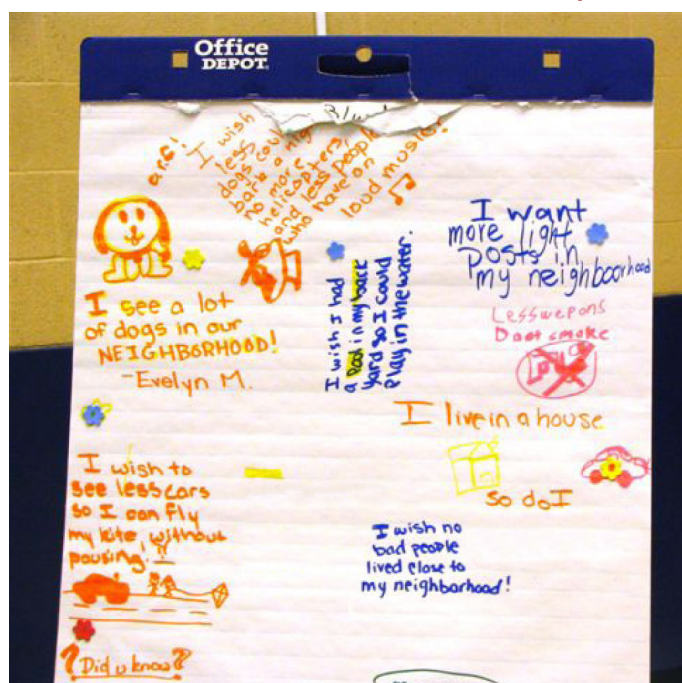 Office
DEPOT.
arf!
I wish
less
dogs could
bark a nig
no more
helicopters,
and less people
who have on
loud music!
I see a lot
of dogs in our
NEIGHBORHOOD!
-Evelyn M.
I wish I had
a Pool in my back
yard so I could
play in the water.
I want
more light
posts in
my neighboorhood
Less wepons
Doot smoke
I live in a house
so do I
I wish to
see less cars
so I can fly
my kite, without
pausing!
I wish no
bad people
lived close to
my neighborhood!
? Did u know?